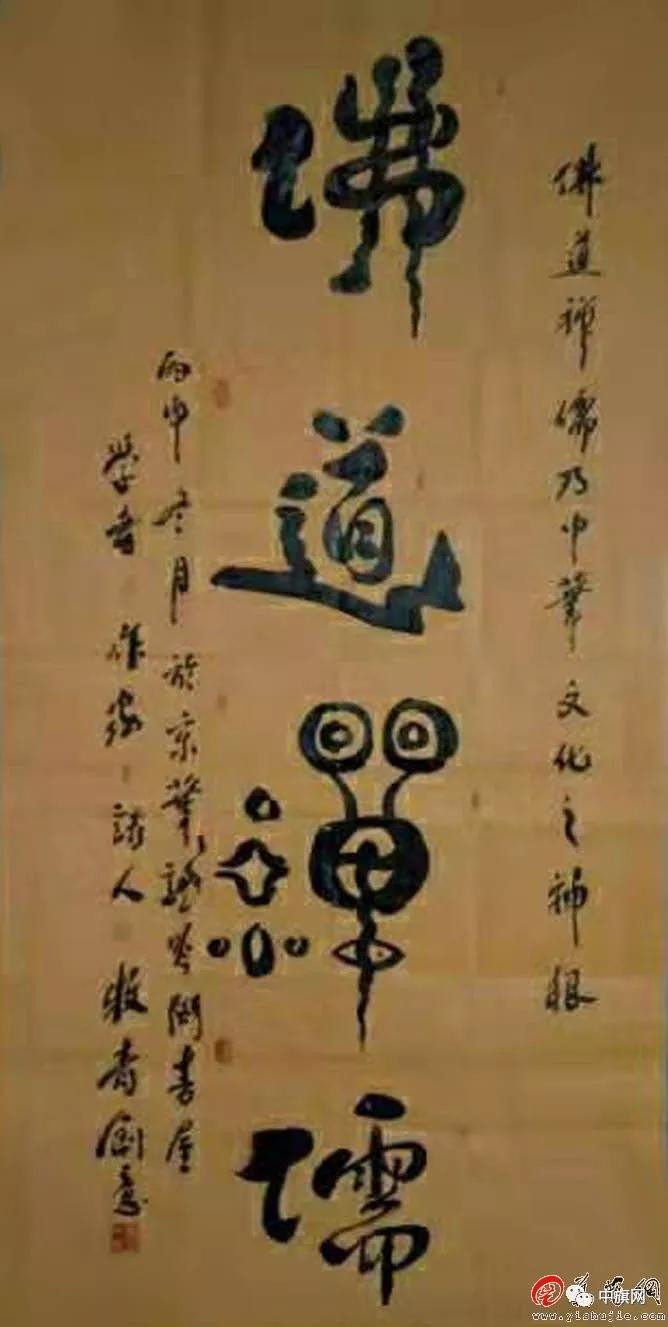 佛道禪儒乃中華文化之神根
佛道禪儒
丙申冬月於京華 湖書屋
學者 作家 詩人 牧青創意
艺术网
www.yishujie.com
中旗网